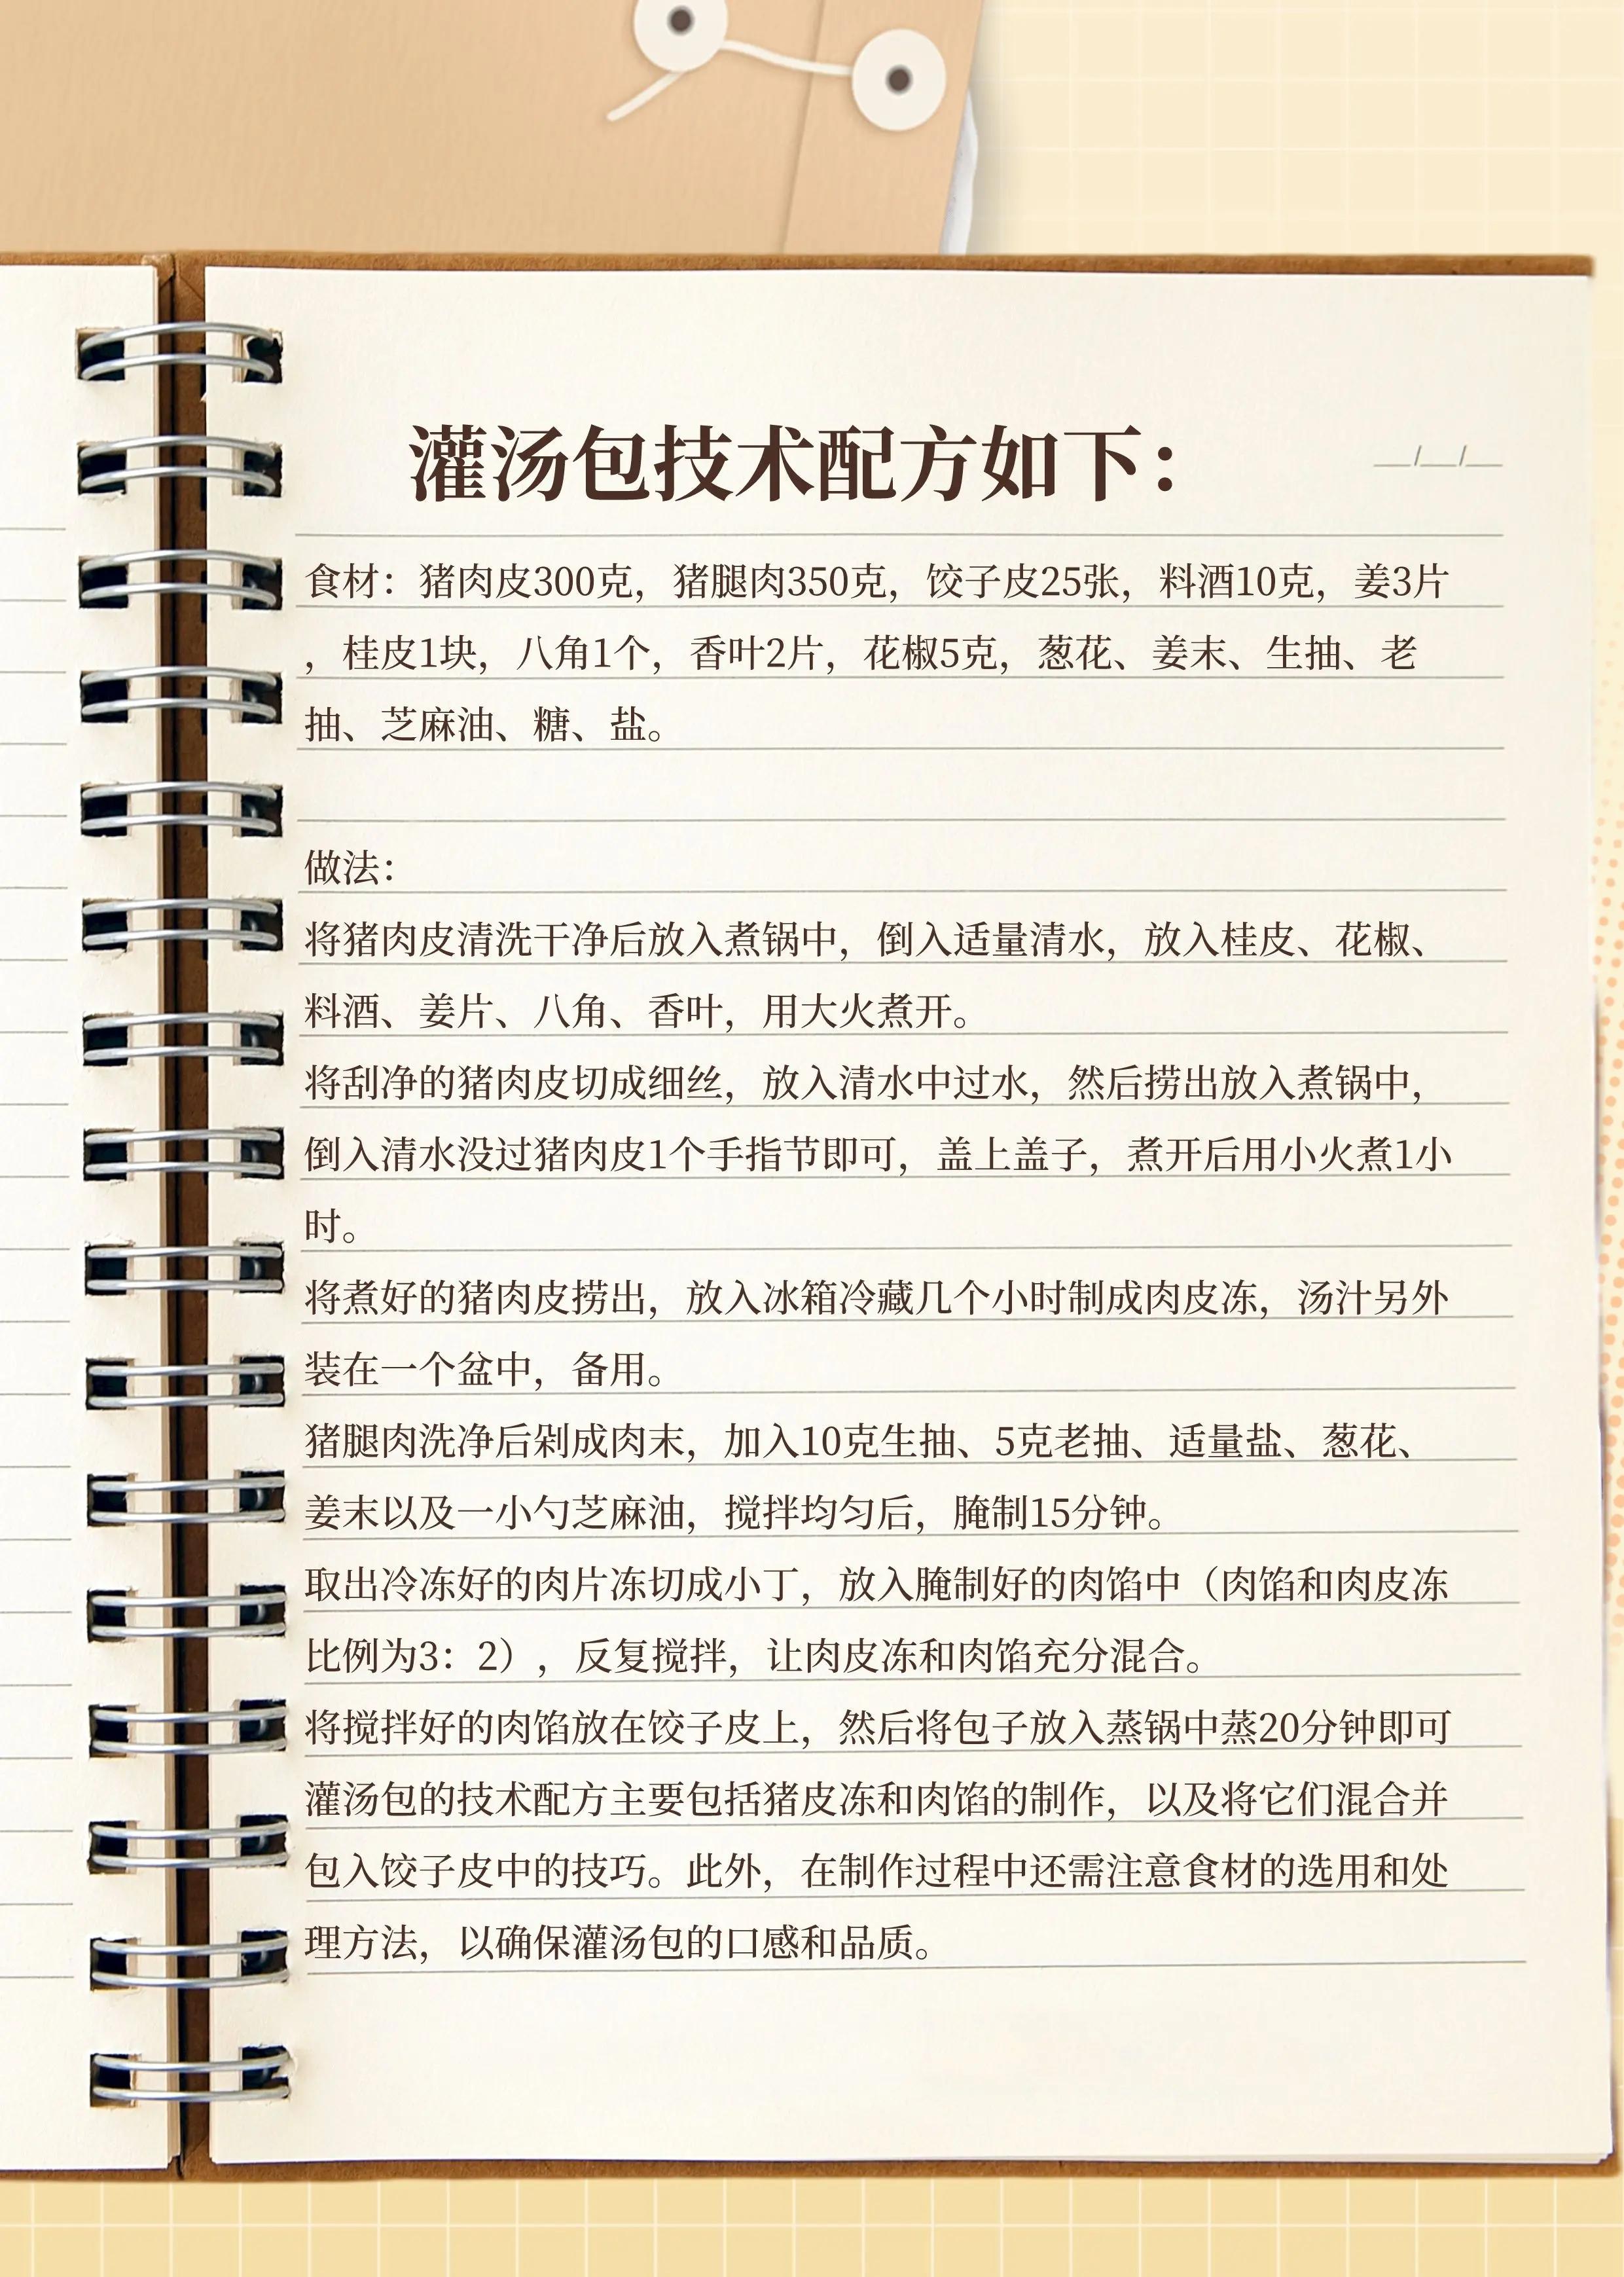 灌汤包技术配方如下：
__/__/__
食材：猪肉皮300克，猪腿肉350克，饺子皮25张，料酒10克，姜3片
，桂皮1块，八角1个，香叶2片，花椒5克，葱花、姜末、生抽、老
抽、芝麻油、糖、盐。
做法：
将猪肉皮清洗干净后放入煮锅中，倒入适量清水，放入桂皮、花椒、
料酒、姜片、八角、香叶，用大火煮开。
将刮净的猪肉皮切成细丝，放入清水中过水，然后捞出放入煮锅中，
倒入清水没过猪肉皮1个手指节即可，盖上盖子，煮开后用小火煮1小
时。
将煮好的猪肉皮捞出，放入冰箱冷藏几个小时制成肉皮冻，汤汁另外
装在一个盆中，备用。
猪腿肉洗净后剁成肉末，加入10克生抽、5克老抽、适量盐、葱花、
姜末以及一小勺芝麻油，搅拌均匀后，腌制15分钟。
取出冷冻好的肉片冻切成小丁，放入腌制好的肉馅中（肉馅和肉皮冻
比例为3：2），反复搅拌，让肉皮冻和肉馅充分混合。
将搅拌好的肉馅放在饺子皮上，然后将包子放入蒸锅中蒸20分钟即可
灌汤包的技术配方主要包括猪皮冻和肉馅的制作，以及将它们混合并
包入饺子皮中的技巧。此外，在制作过程中还需注意食材的选用和处
理方法，以确保灌汤包的口感和品质。